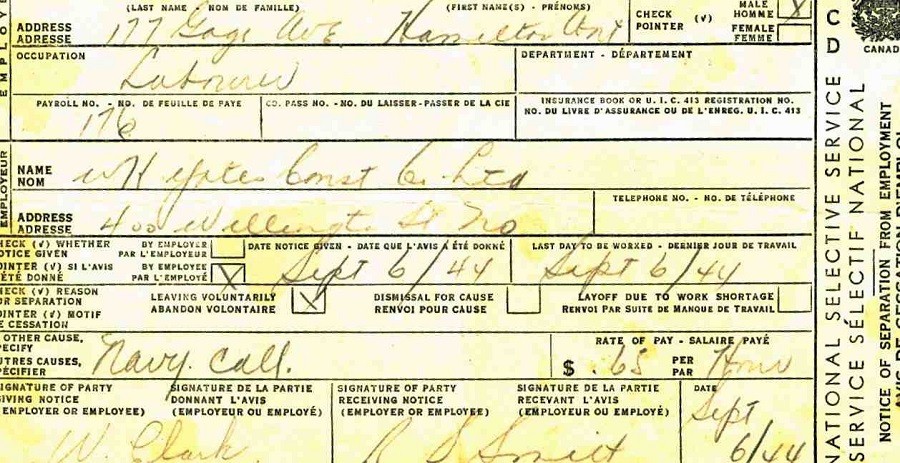 (LAST NAME - NOM DE FAMILLE) (FIRST NAME(S) - PRÉNOMS) MALE HOMME X
ADDRESS ADRESSE 177 Gage Ave Hamilton Ont CHECK POINTER (√) FEMALE FEMME
OCCUPATION DEPARTMENT - DÉPARTEMENT
Labourer
PAYROLL NO. - NO. DE FEUILLE DE PAYE CO. PASS NO. - NO. DU LAISSER-PASSER DE LA CIE INSURANCE BOOK OR U. I. C. 413 REGISTRATION NO.
NO. DU LIVRE D'ASSURANCE OU DE L'ENREG. U. I. C. 413
176
EMPLOYEUR
NAME NOM W H Yates Const Co. Ltd
TELEPHONE NO. - NO. DE TÉLÉPHONE
ADDRESS ADRESSE 400 Wellington St No
CHECK (√) WHETHER NOTICE GIVEN BY EMPLOYER PAR L'EMPLOYEUR DATE NOTICE GIVEN - DATE QUE L'AVIS A ÉTÉ DONNÉ LAST DAY TO BE WORKED - DERNIER JOUR DE TRAVAIL
POINTER (√) SI L'AVIS ÉTÉ DONNÉ BY EMPLOYEE PAR L'EMPLOYÉ X Sept 6/44 Sept 6/44
CHECK (√) REASON FOR SEPARATION LEAVING VOLUNTARILY ABANDON VOLONTAIRE X DISMISSAL FOR CAUSE RENVOI POUR CAUSE LAYOFF DUE TO WORK SHORTAGE RENVOI PAR SUITE DE MANQUE DE TRAVAIL
POINTER (√) MOTIF DE CESSATION
OTHER CAUSE, SPECIFY RATE OF PAY - SALAIRE PAYÉ
AUTRES CAUSES, SPÉCIFIER Navy. call. $ .65 PER PAR Hour
SIGNATURE OF PARTY GIVING NOTICE (EMPLOYER OR EMPLOYEE) SIGNATURE DE LA PARTIE DONNANT L'AVIS (EMPLOYEUR OU EMPLOYÉ) SIGNATURE OF PARTY RECEIVING NOTICE (EMPLOYER OR EMPLOYEE) SIGNATURE DE LA PARTIE RECEVANT L'AVIS (EMPLOYEUR OU EMPLOYÉ) DATE
Sept
W. Clark R S Smith 6/44
CANAD
NATIONAL SELECTIVE SERVICE
SERVICE SÉLECTIF NATIONAL
NOTICE OF SEPARATION FROM EMPLOYMENT